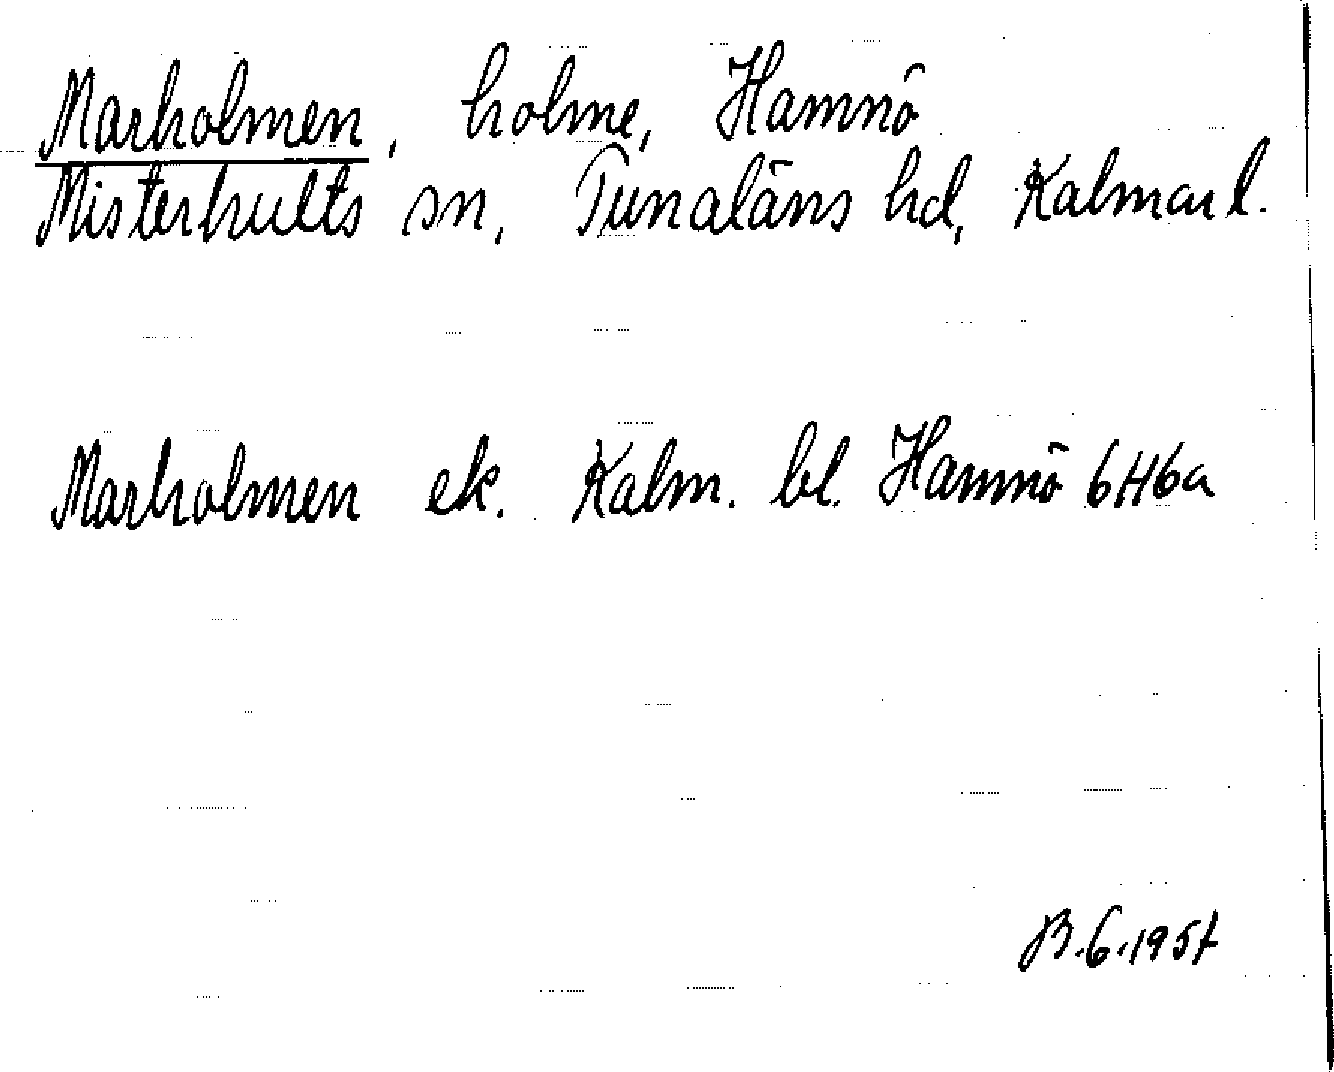 Marholmen, holme, Hamnö
Misterhults sn, Tunaläns hd, Kalmar l.
Marholmen ek. Kalm. bl. Hamnö 6H6a
B.6.1957